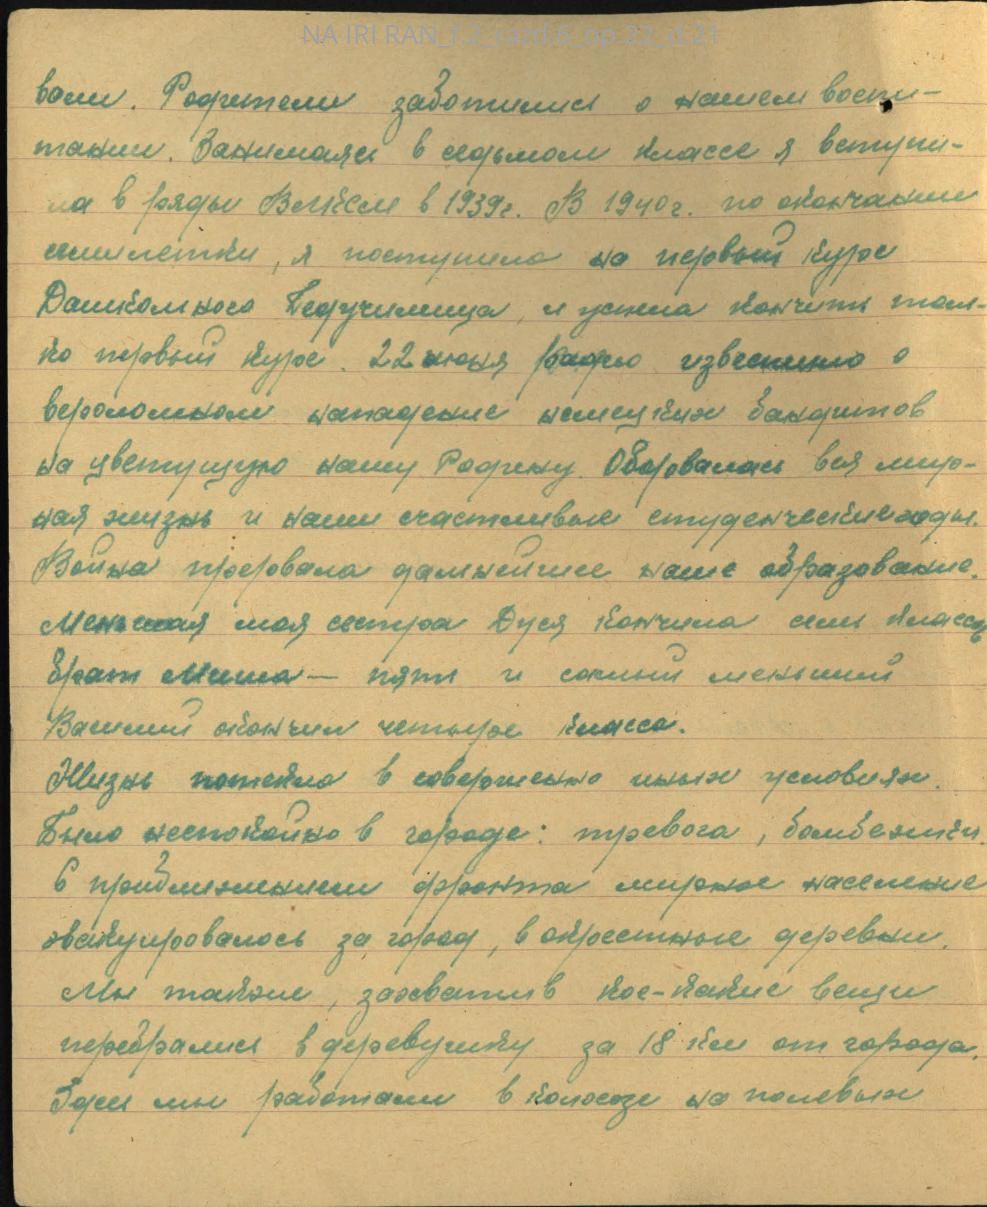 NA IRI RAN_f.2_razd.6_op.22_d.21
вали. Родители заботились о нашем воспи-
тании. Занимаясь в седьмом классе я вступи-
ла в ряды ВЛКСМ в 1939г. В 1940г. по окончании
семилетки, я поступила на первый курс
Дошкольного Педучилища, и успела кончить толь-
ко первый курс. 22 июня радио известило о
вероломном нападение немецких бандитов
на цветущую нашу Родину. Оборвалась вся мир-
ная жизнь и наши счастливые студенческие годы.
Война прервала дальнейшее наше образование.
Меньшая моя сестра Дуся кончила семь классов
брат Миша — пять и самый меньший
Василий окончил четыре класса.
Жизнь потекла в совершенно иных условиях.
Было неспокойно в городе: тревога, бомбежки.
С приближением фронта мирное население
эвакуировалось за город, в окрестные деревни.
Мы также, захватив кое-какие вещи
перебрались в деревушку за 18 км от города.
Здесь мы работали в колхозе на полевых